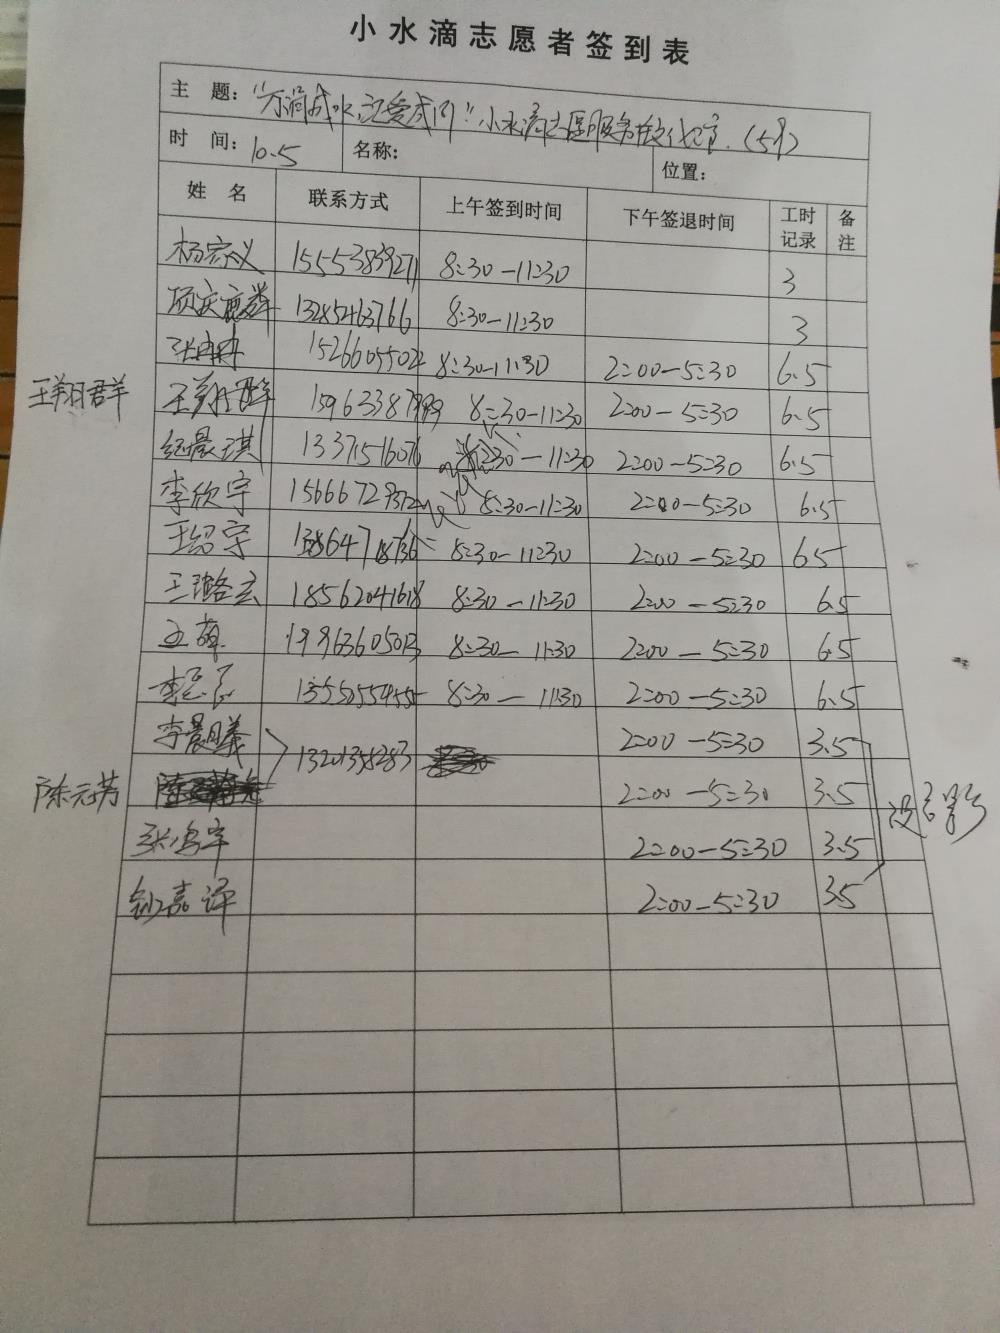 小水滴志愿者签到表
主 题: 小水滴志愿服务
时 间: 10.5 名称: 位置:
姓 名 联系方式 上午签到时间 下午签退时间 工时记录 备注
杨宗义 15553839271 8:30-11:30 3
项庆 13285463766 8:30-11:30 3
张冉冉 15266055022 8:30-11:30 2:00-5:30 6.5
王翔群 王翔群 15963387999 8:30-11:30 2:00-5:30 6.5
晨琪 13371516076 8:30-11:30 2:00-5:30 6.5
李欣宇 15666729372 8:30-11:30 2:00-5:30 6.5
王绍宇 13864718736 8:30-11:30 2:00-5:30 6.5
王璐 18562041618 8:30-11:30 2:00-5:30 6.5
王萌 19963605013 8:30-11:30 2:00-5:30 6.5
李 8:30-11:30 2:00-5:30 6.5
李晨曦 13201358283 2:00-5:30 3.5
陈元芳 2:00-5:30 3.5 没合影
张 宇 2:00-5:30 3.5
嘉译 2:00-5:30 3.5